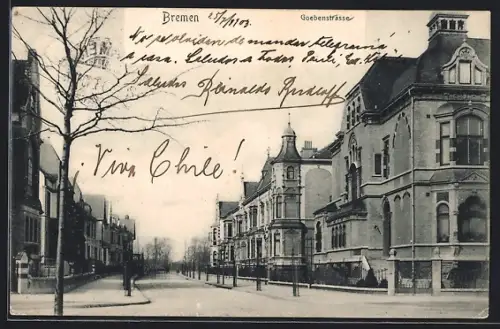 Bremen 25/2/1903 Goebenstrasse
No se olviden de mandar telegrama
á casa. Saludos a todos
Saludos Reinaldo Rudloff
Viva Chile!